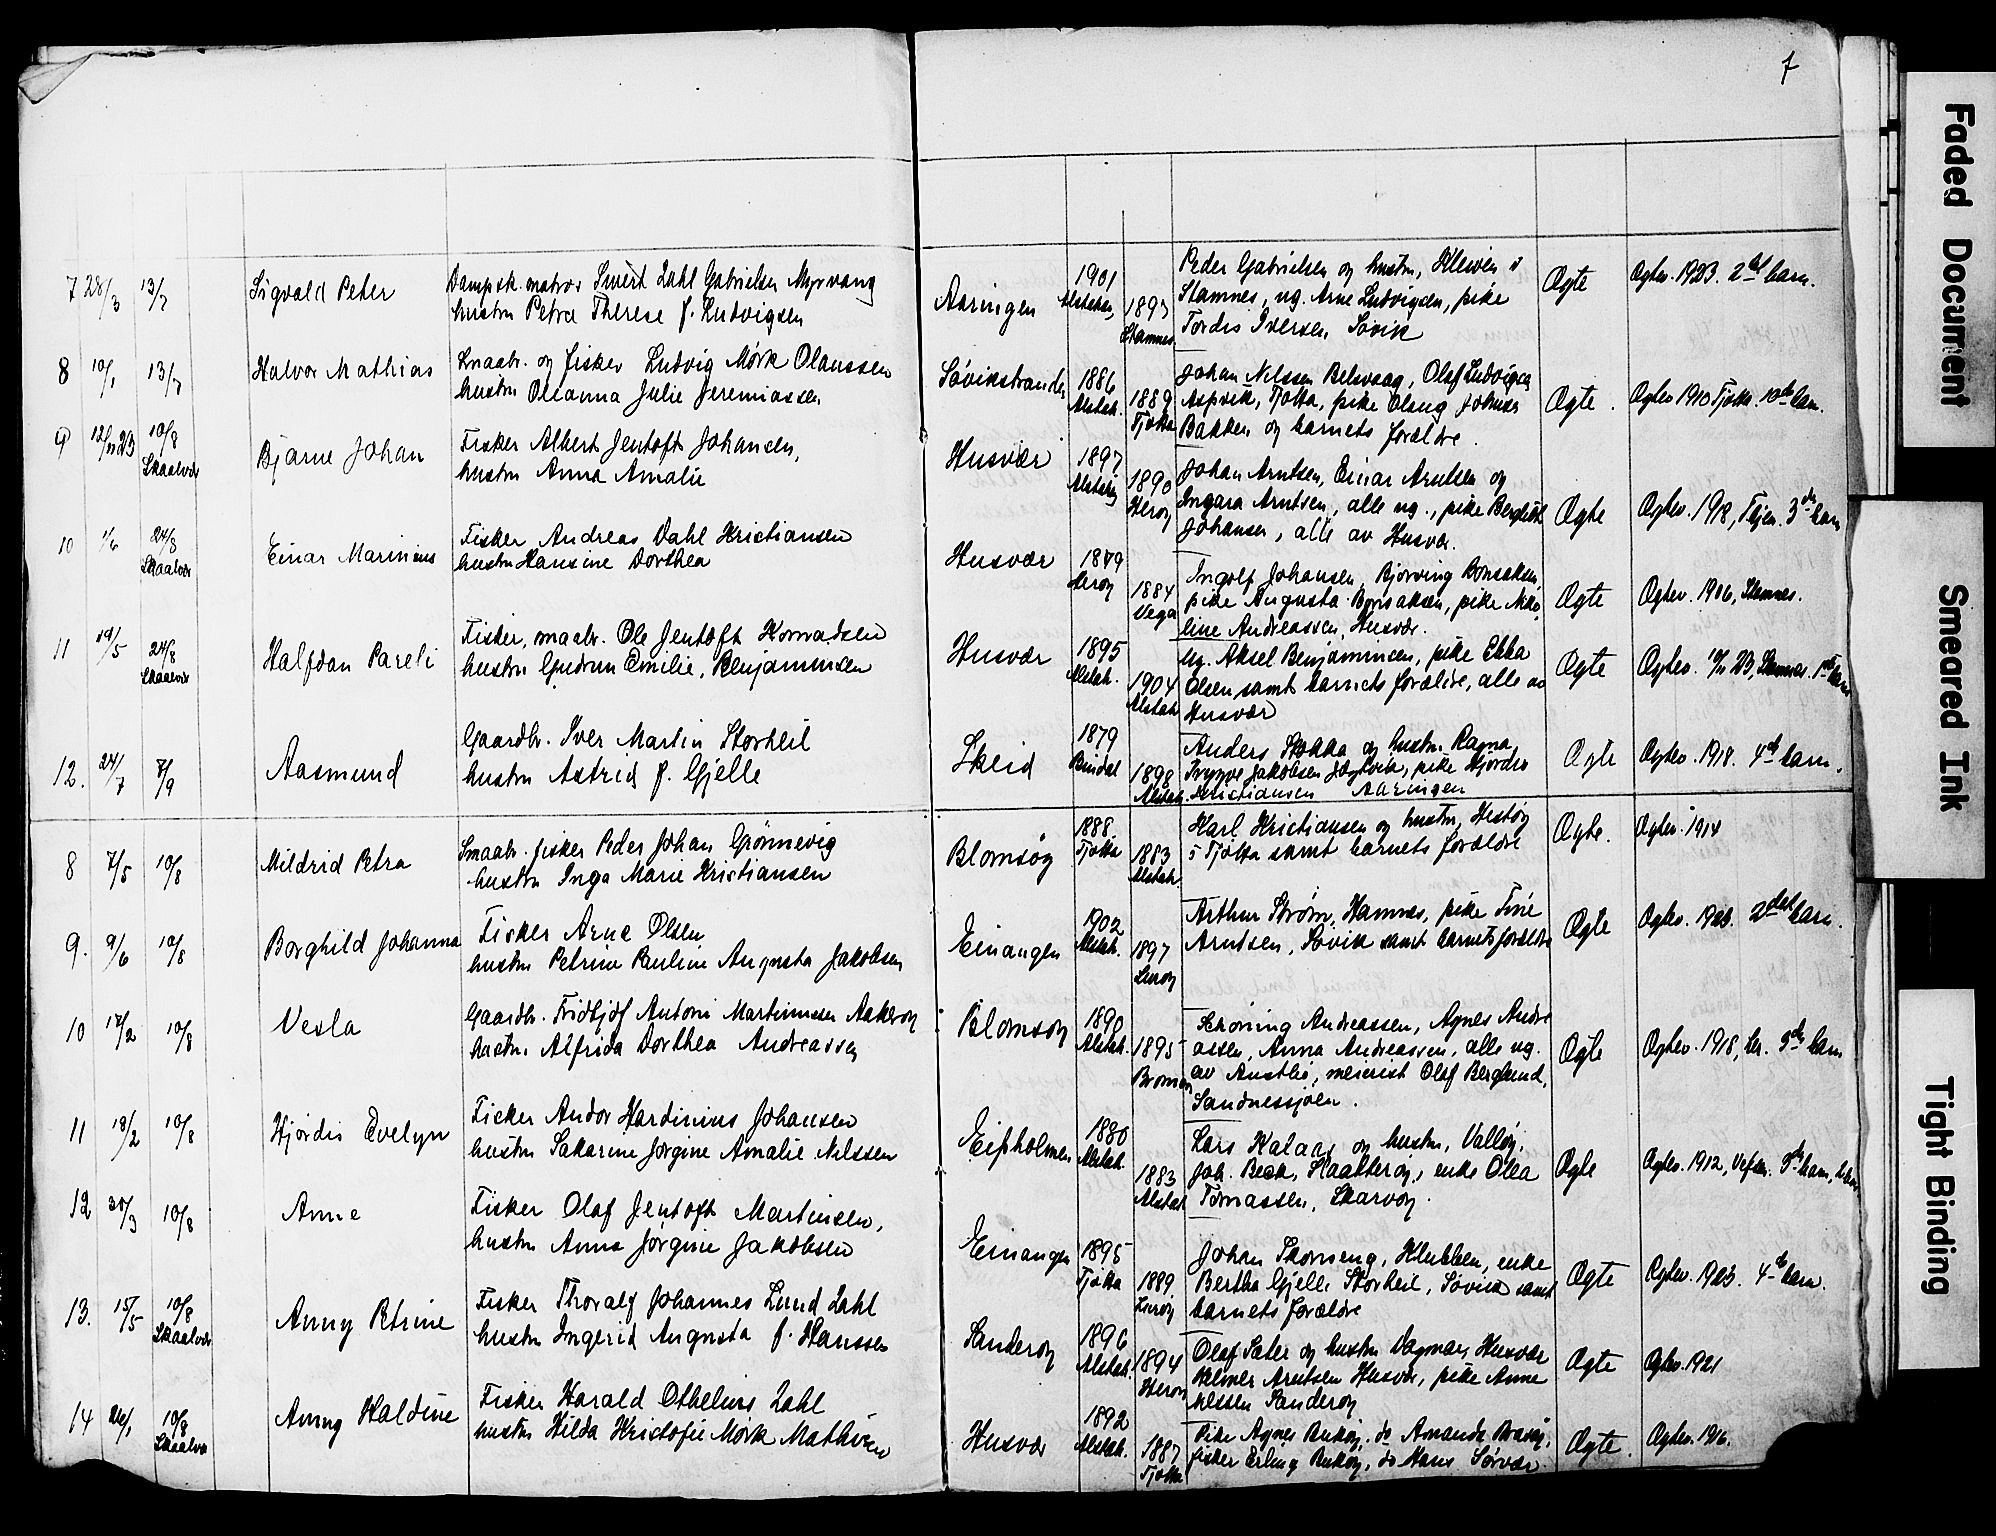 7
7 28/3 13/7 Sigvald Peter
Dampsk. matros Sivert Dahl Gabrielsen Myrvang
hustru Petra Therese f. Ludvigsen
Aaringen
1901
1897
Stamnes
Peder Gabrielsen og hustru, Kleiven i
Stamnes, ug. Arne Ludvigsen, pike
Tordis Iversen, Søvik
Ægte
Ægtev. 1923. 2det barn.
8 10/1 13/7 Halvor Mathias
Smaabr. og fisker Ludvig Mørk Olaussen
hustru Oleanna Julie Jeremiassen
Søvikstranden
1886
Alstah.
1889
Tjøtta
Johan Nilssen Belsvaag, Olaf Ludvigsen
Aspvik, Tjøtta, pike Olaug Johnsen
Bakken og barnets forældre.
Ægte.
Ægtev 1910 Tjøtta. 10de barn.
9 12/11 23 10/8 Bjarne Johan
Skaalvær
Fisker Albert Jentoft Johansen,
hustru Anna Amalie
Husvær
1897
1890
Herøy
Johan Arntsen, Einar Arntsen og
Ingara Arntsen, alle ug., pike Bergliot
Johansen, alle av Husvær.
Ægte
Ægtev. 1918, 3de barn
10 1/6 24/8 Einar Marinius
Skaalvær
Fisker Andreas Dahl Kristiansen
hustru Hansine Dorthea
Husvær
1879
Herøy
1884
Vega
Ingolf Johansen, Bjørving Bonsaksen,
pike Augusta Bonsaksen, pike Niko
line Andreassen, Husvær.
Ægte
Ægtev. 1906, Stamnes.
11 19/5 24/8 Halfdan Pareli
Skaalvær
Fisker, smaabr. Ole Jentoft Konradsen
hustru Gudrun Emilie, Benjaminsen
Husvær
1895
Alstah.
1904
Alstah
Ug. Aksel Benjaminsen, pike Ebba
Olsen samt barnets forældre, alle av
Husvær
Ægte
Ægtev. 23, Stamnes. 1ste barn
12. 24/7 7/9 Aasmund
Gaardbr. Iver Martin Storheil
hustru Astrid f. Gjelle
Skeid
1879
Bindal
1898
Alstah.
Anders Stokka og hustru Ragna
Trygve Jakobsen Jægtvik, pike Hjørdis
Kristiansen Aaringen
Ægte
Ægtev. 1918. 4de barn.
8 7/5 10/8 Mildrid Petra
Smaabr. fisker Peder Johan Grønnevig
hustru Inga Marie Kristiansen
Blomsøy
1888.
Tjøtta
1883
Alstah.
Karl Kristiansen og hustru, Hestøy
i Tjøtta samt barnets forældre
Ægte.
Ægtev. 1914
9. 9/6 10/8 Borghild Johanna
Fisker Arne Olsen
hustru Petrine Pauline Augusta Jakobsen
Einangen
1902
Alstah.
1897
Lurøy
Arthur Strøm, Hamnes, pike Tine
Arntsen, Søvik samt barnets forældre
Ægte
Ægtev. 1923. 2det barn.
10 17/2 10/8 Vesla
Gaardbr. Fridtjof Antoni Martinussen Aakerøy
hustru Alfrida Dorthea Andreassen
Blomsøy
1890
Alstah.
1895
Schøning Andreassen, Agnes Andre
assen, Anna Andreassen, alle ug.
av Austbø, meierist Olaf Berglund,
Sandnessjøen.
Ægte
Ægtev. 1918, barn
11 18/2 10/8 Hjørdis Evelyn
Fisker Andor Hardinius Johansen
hustru Sakarine Jørgine Amalie Nilssen
1880
Alstah.
1883
Alstah
Lars Kalaas og hustru, Valløy,
Joh. Beck, enke Olea
Tomassen, Skarvøy.
Ægte
Ægtev. 1912, barn,
12 30/3 10/8 Anne
Fisker Olaf Jentoft Martinsen,
hustru Anna Jørgine Jakobsen
Einangen
1895
Tjøtta
1889
Lurøy
Johan Skomseng, Klubben, enke
Bertha Gjelle Storheil, Søvik samt
barnets forældre
Ægte
Ægtev. 1923. 4de barn.
13. 15/5 10/8 Anny Petrine
Skaalvær
Fisker Thoralf Johannes Lund Dahl
hustru Ingerid Augusta f. Hanssen
Sanderøy
1896
Alstah.
1894
Herøy
Olaf Sæter og hustru Dagmar, Husvær
Helmer Arntsen Husvær, pike Anne
Nilssen Sanderøy
Ægte
Ægtev. 1921
14 26/1 10/8 Anny Haldine
Skaalvær
Fisker Harald Othelius Dahl
hustru Hilda Kristofie Mørk Mathisen
Husvær
1892
Alstah.
1887
Tjøtta
Pike Agnes Buköy, do Amanda
fisker Erling Buköy, do Hans Sørvær
Ægte.
Ægtev. 1916.
Faded Document
Smeared Ink
Tight Binding